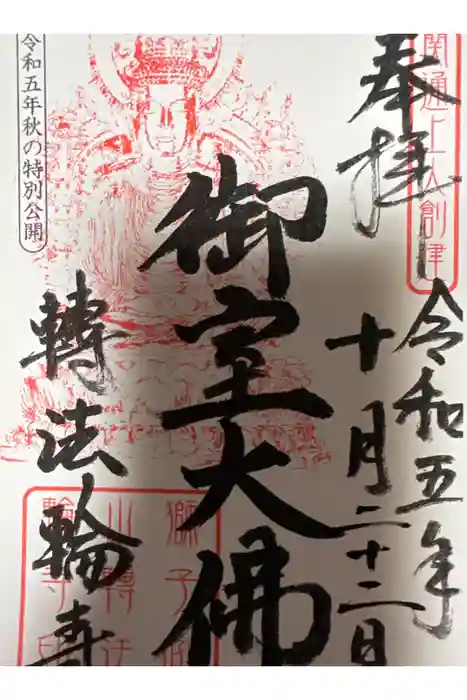 奉拝
関通上人創建
令和五年
十月二十二日
御室大佛
轉法輪寺
令和五年秋の特別公開
獅子吼
山轉法
輪寺印